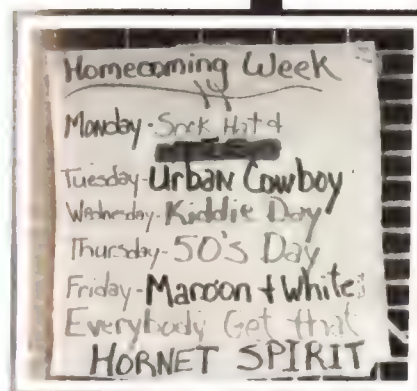 Homecoming Week
Monday - Sock Hat d
Tuesday - Urban Cowboy
Wednesday - Kiddie Day
Thursday - 50's Day
Friday - Maroon + White
Everybody Get that
HORNET SPIRIT